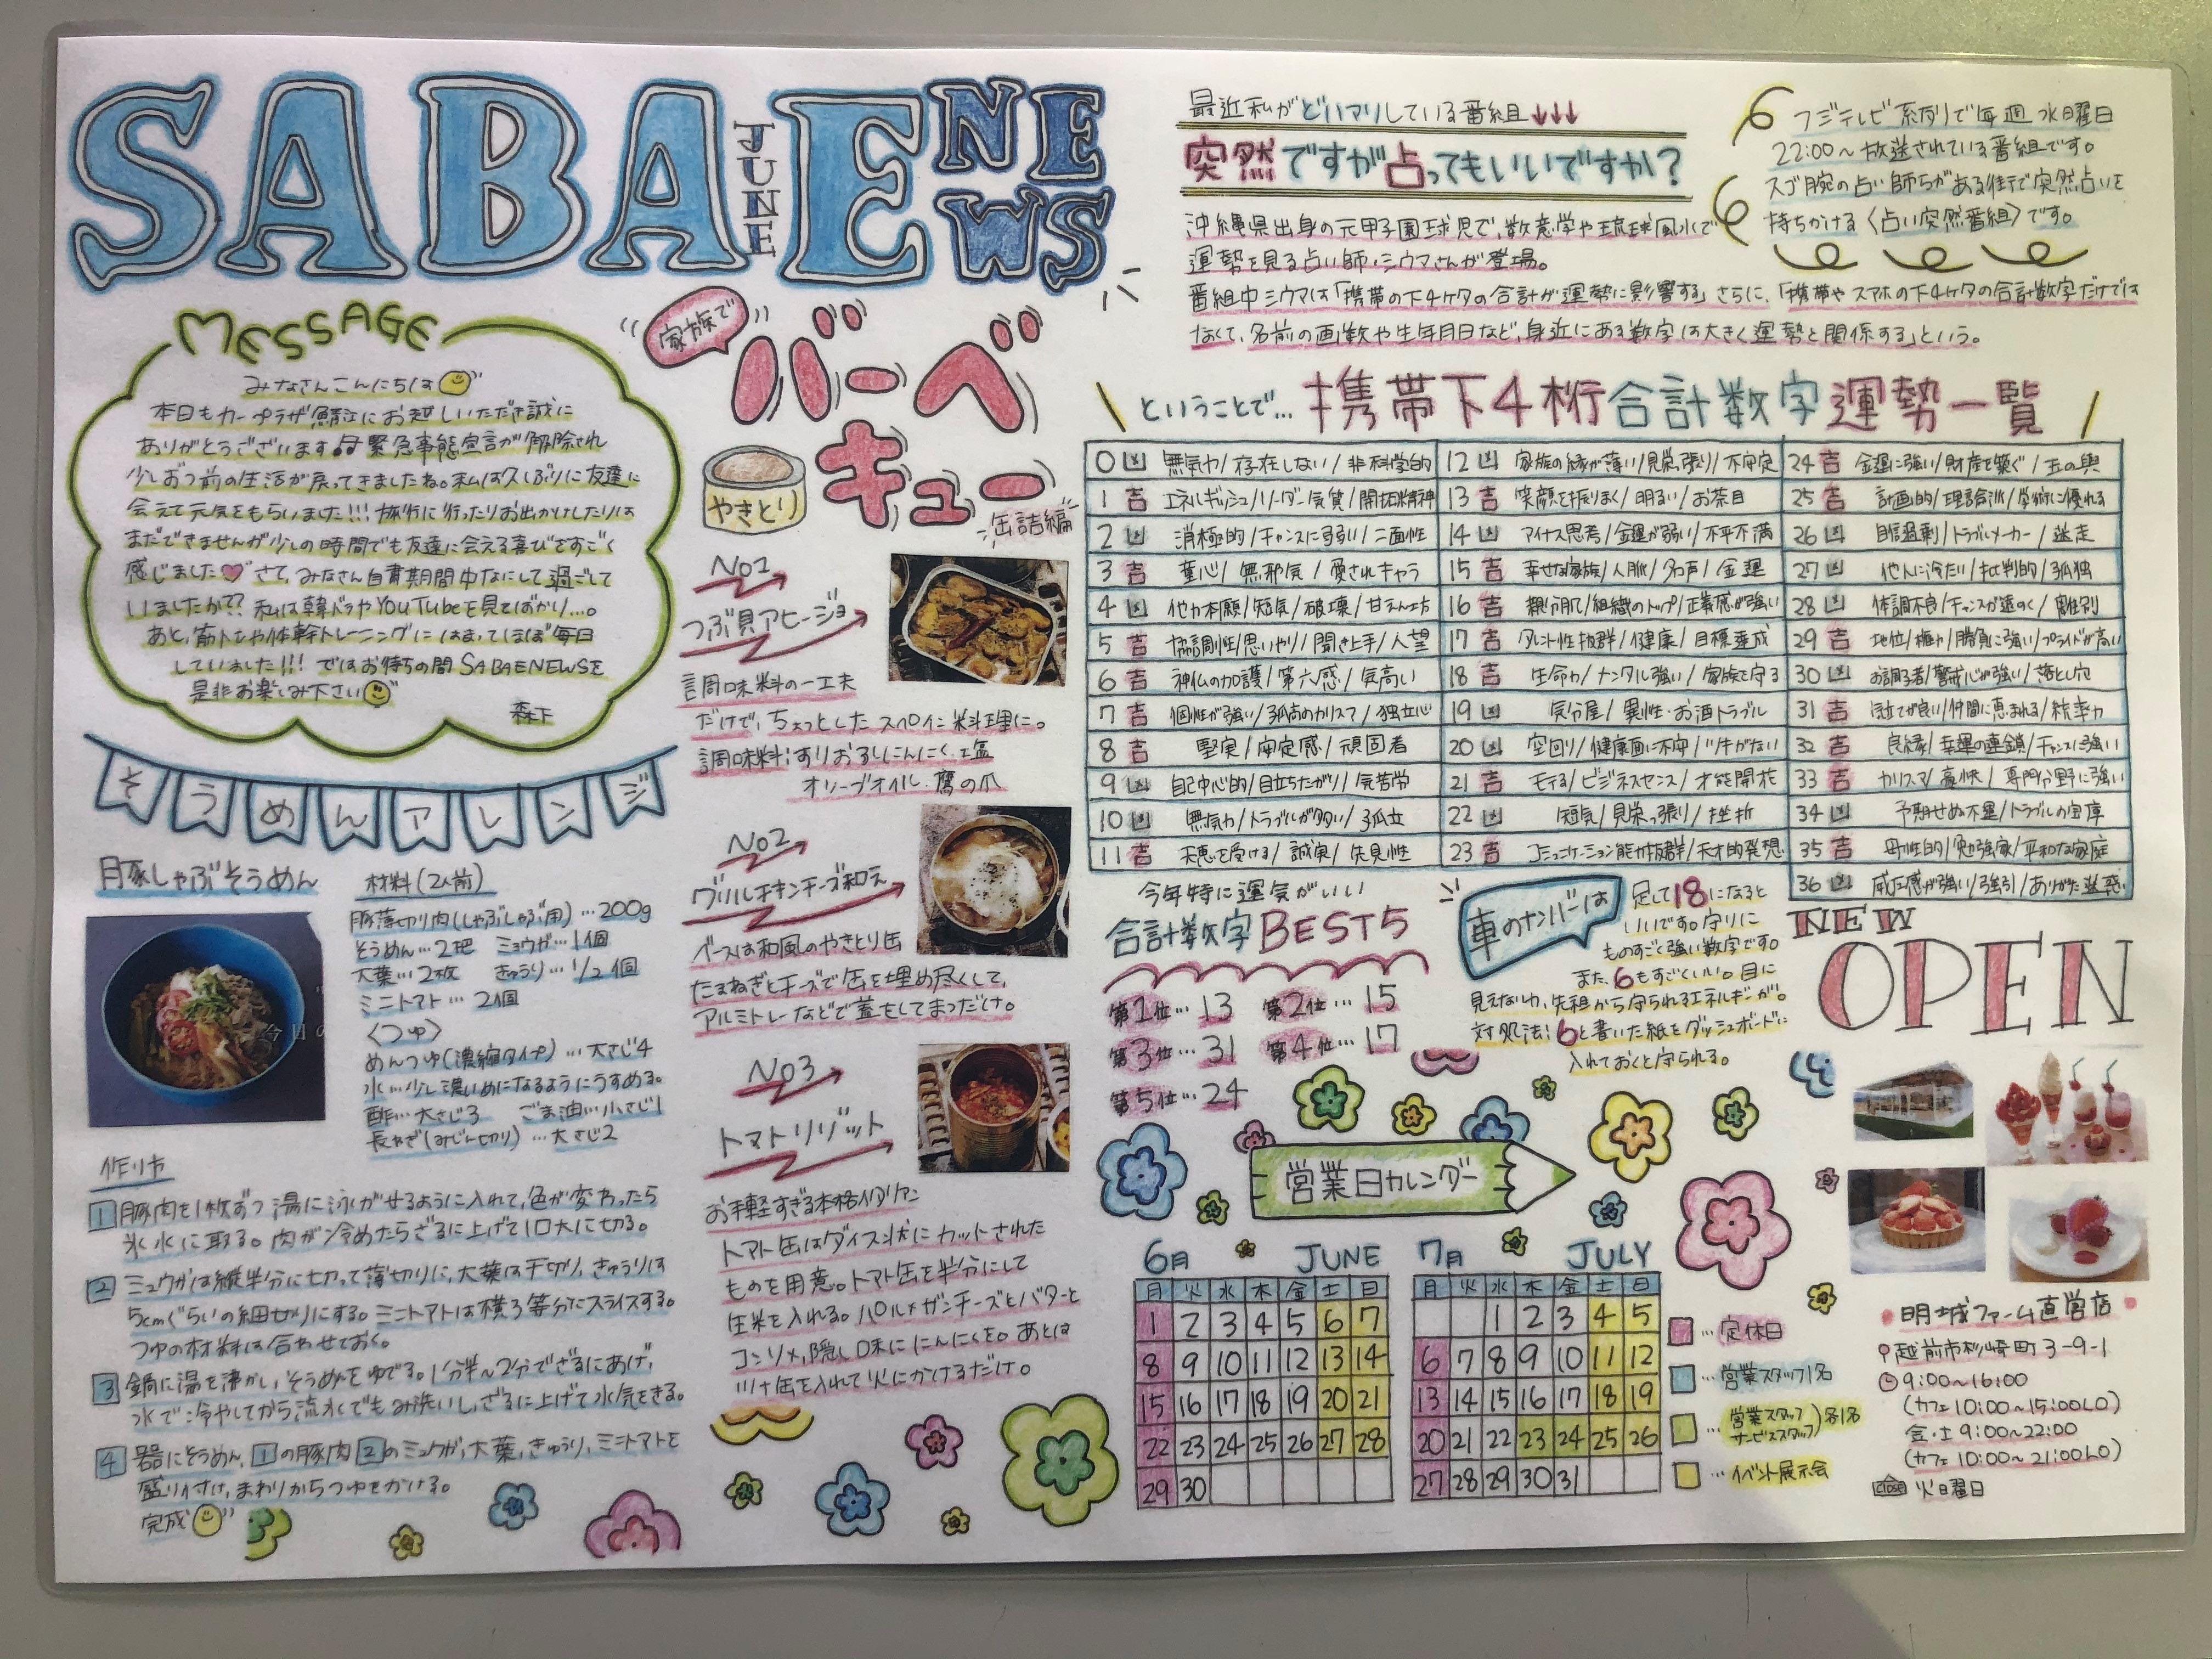 SABAE NEWS
JUNE
MESSAGE
みなさんこんにちは
本日もカープラザ鯖江にお越しいただき誠に
ありがとうございます♫緊急事態宣言が解除され
少しずつ前の生活が戻ってきましたね。私は久しぶりに友達に
会えて元気をもらいました!!!旅行に行ったりお出かけしたりは
まだできませんが少しの時間でも友達に会える喜びをすごく
感じました♡さて、みなさん自粛期間中なにして過ごして
いましたか??私は韓ドラやYouTubeを見てばかり…。
あと、筋トレや体幹トレーニングにはまってほぼ毎日
していました!!!ではお待ちの間SABAENEWSを
是非お楽しみ下さい
森下
そうめんアレンジ
豚しゃぶそうめん
材料(2人前)
豚薄切り肉(しゃぶしゃぶ用)…200g
そうめん…2把 ミョウガ…1個
大葉…2枚 きゅうり…1/2個
ミニトマト…2個
〈つゆ〉
めんつゆ(濃縮タイプ)…大さじ4
水…少し濃いめになるようにうすめる。
酢…大さじ3 ごま油…小さじ1
長ねぎ(みじん切り)…大さじ2
作り方
1 豚肉を1枚ずつ湯に泳がせるように入れて、色が変わったら
氷水に取る。肉が冷めたらざるに上げて1口大に切る。
2 ミョウガは縦半分に切って薄切りに、大葉は千切り、きゅうりは
5cmぐらいの細切りにする。ミニトマトは横3等分にスライスする。
つゆの材料は合わせておく。
3 鍋に湯を沸かし、そうめんをゆでる。1分半~2分でざるにあげ、
水で冷やしてから流水でもみ洗いし、ざるに上げて水気をきる。
4 器にそうめん、1の豚肉2のミョウガ、大葉、きゅうり、ミニトマトを
盛り付け、まわりからつゆをかける。
完成
家族で
バーベキュー
缶詰編
やきとり
No1
つぶ貝アヒージョ
調味料の一工夫
だけで、ちょっとしたスペイン料理に。
調味料:すりおろしにんにく・塩
オリーブオイル・鷹の爪
No2
グリルチキンチーズ和え
ベースは和風のやきとり缶
たまねぎとチーズで缶を埋め尽くして、
アルミトレーなどで蓋をしてまつだけ。
No3
トマトリゾット
お手軽すぎる本格イタリアン
トマト缶はダイス状にカットされた
ものを用意。トマト缶を半分にして
生米を入れる。パルメザンチーズとバターと
コンソメ、隠し味ににんにくを。あとは
ツナ缶を入れて火にかけるだけ。
最近私がどハマりしている番組↓↓↓
突然ですが占ってもいいですか?
フジテレビ系列で毎週水曜日
22:00~放送されている番組です。
スゴ腕の占い師たちがある街で突然占いを
持ちかける〈占い突然番組〉です。
沖縄県出身の元甲子園球児で、数意学や琉球風水で
運勢を見る占い師・シウマさんが登場。
番組中シウマは「携帯の下4ケタの合計が運勢に影響する」さらに、「携帯やスマホの下4ケタの合計数字だけでは
なくて、名前の画数や生年月日など、身近にある数字は大きく運勢と関係する」という。
ということで… 携帯下4桁合計数字運勢一覧
0 凶 無気力/存在しない/非科学的
1 吉 エネルギッシュ/リーダー気質/開拓精神
2 凶 消極的/チャンスに弱い/二面性
3 吉 童心/無邪気/愛されキャラ
4 凶 他力本願/短気/破壊/甘えん坊
5 吉 協調性/思いやり/聞き上手/人望
6 吉 神仏の加護/第六感/気高い
7 吉 個性が強い/孤高のカリスマ/独立心
8 吉 堅実/安定感/頑固者
9 凶 自己中心的/目立ちたがり/気苦労
10 凶 無気力/トラブルが多い/孤立
11 吉 天恵を受ける/誠実/先見性
12 凶 家族の縁が薄い/見栄っ張り/不安定
13 吉 笑顔を振りまく/明るい/お茶目
14 凶 マイナス思考/金運が弱い/不平不満
15 吉 幸せな家族/人脈/名声/金運
16 吉 親分肌/組織のトップ/正義感が強い
17 吉 タレント性抜群/健康/目標達成
18 吉 生命力/メンタル強い/家族を守る
19 凶 気分屋/異性・お酒トラブル
20 凶 空回り/健康面に不安/ツキがない
21 吉 モテる/ビジネスセンス/才能開花
22 凶 短気/見栄っ張り/挫折
23 吉 コミュニケーション能力抜群/天才的発想
24 吉 金運に強い/財産を築ぐ/玉の輿
25 吉 計画的/理論派/学術に優れる
26 凶 自信過剰/トラブルメーカー/迷走
27 凶 他人に冷たい/批判的/孤独
28 凶 体調不良/チャンスが遠のく/離別
29 吉 地位/権力/勝負に強い/プライドが高い
30 凶 お調子者/警戒心が強い/落とし穴
31 吉 段取が良い/仲間に恵まれる/統率力
32 吉 良縁/幸運の連鎖/チャンスに強い
33 吉 カリスマ/豪快/専門分野に強い
34 凶 予期せぬ不運/トラブルの宝庫
35 吉 母性的/勉強家/平和な家庭
36 凶 威圧感が強い/強引/ありがた迷惑
今年特に運気がいい
合計数字BEST5
第1位…13 第2位…15
第3位…31 第4位…17
第5位…24
車のナンバーは
足して18になると
いいです。守りに
ものすごく強い数字です。
また、6もすごくいい。目に
見えない力、先祖から守られるエネルギーが。
対処法:6と書いた紙をダッシュボードに
入れておくと守られる。
営業日カレンダー
6月 JUNE
月 火 水 木 金 土 日
1 2 3 4 5 6 7
8 9 10 11 12 13 14
15 16 17 18 19 20 21
22 23 24 25 26 27 28
29 30
7月 JULY
月 火 水 木 金 土 日
1 2 3 4 5
6 7 8 9 10 11 12
13 14 15 16 17 18 19
20 21 22 23 24 25 26
27 28 29 30 31
…定休日
…営業スタッフ1名
…営業スタッフ サービススタッフ)各1名
…イベント展示会
NEW
OPEN
明城ファーム直営店
越前市杉崎町3-9-1
9:00~16:00
(カフェ10:00~15:00LO)
金・土9:00~22:00
(カフェ10:00~21:00LO)
CLOSE 火曜日